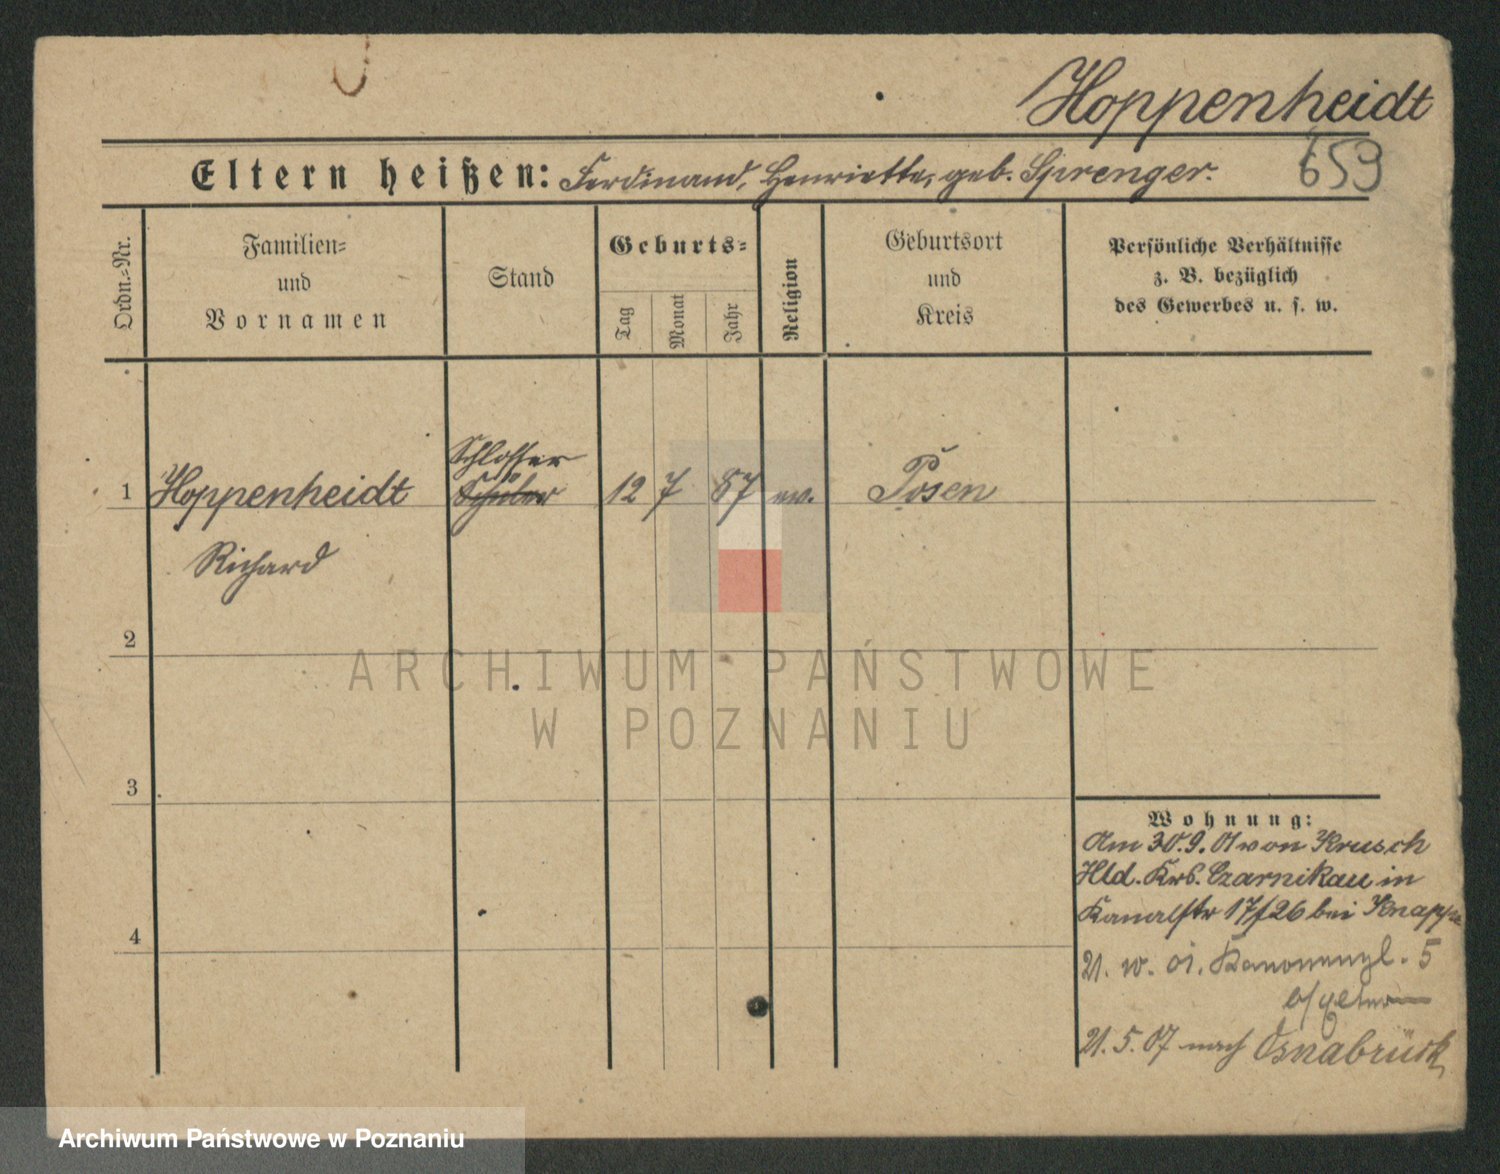 Hoppenheidt
Eltern heißen: Ferdinand, Henriette, geb. Sprenger.
659
Ordn.-Nr.
Familien-
und
Vornamen
Stand
Geburts-
Tag
Monat
Jahr
Religion
Geburtsort
und
Kreis
Persönliche Verhältnisse
z. B. bezüglich
des Gewerbes u. s. w.
Schlosser
1 Hoppenheidt Schüler 12 7 87 ev. Posen
Richard
2
ARCHIWUM PAŃSTWOWE
W POZNANIU
3
Wohnung:
Am 30.9.01 von Krusch
Hld. Krs. Czarnikau in
Kanalstr 17/26 bei Knappe
4
21. 10. 01. Kanonenpl. 5
b/ Eltern
21. 5. 07 nach Osnabrück
Archiwum Państwowe w Poznaniu